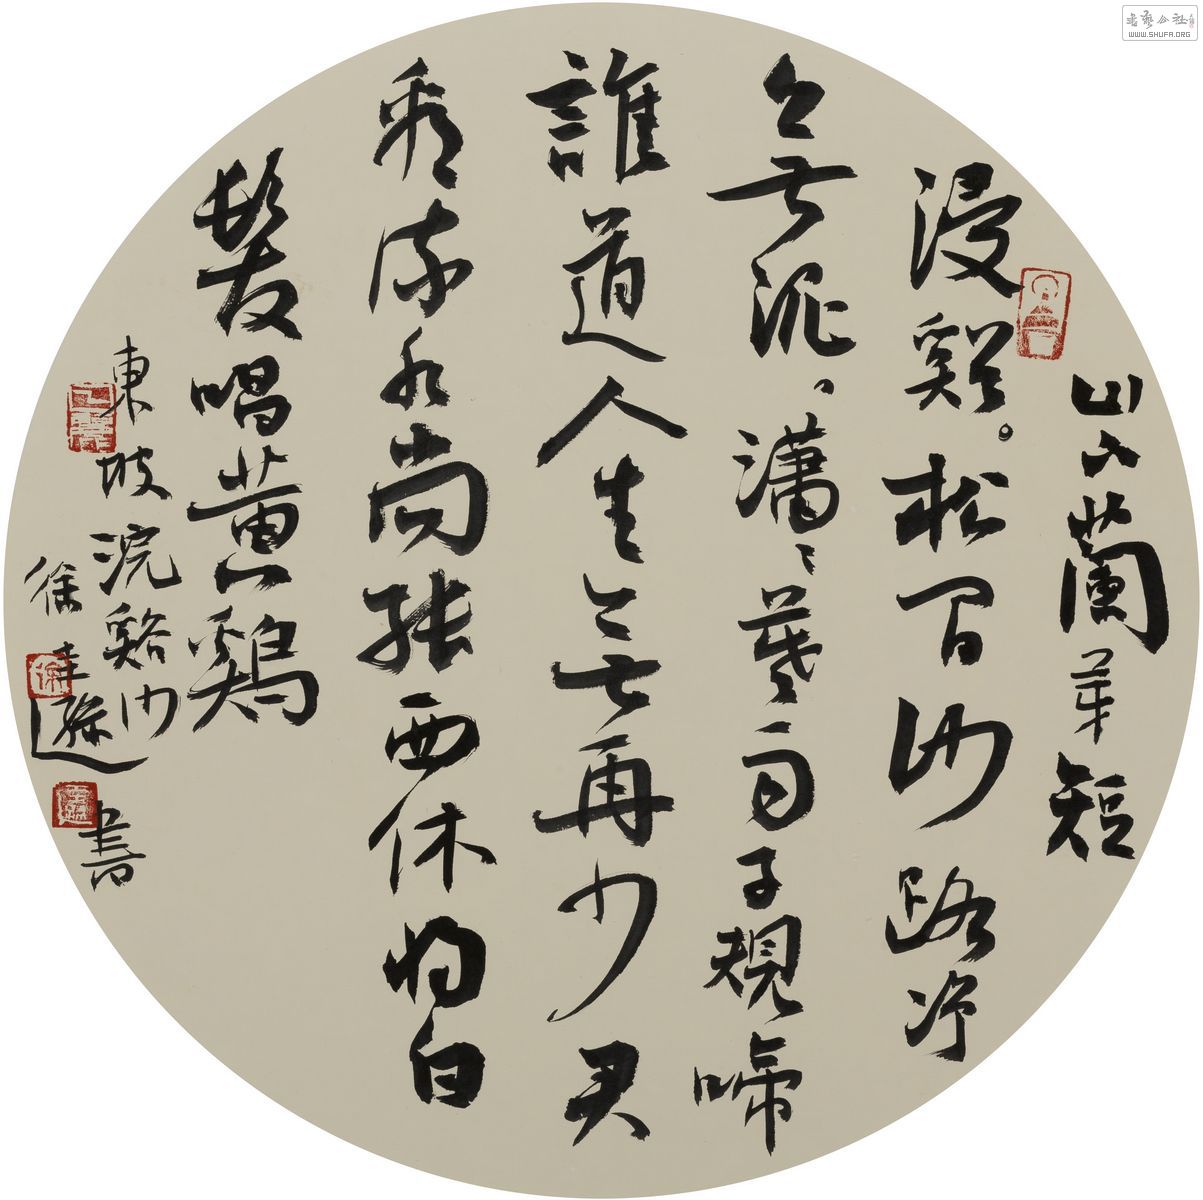 山下蘭芽短
浸谿。松間沙路净
無泥、瀟〻暮雨子規啼
誰道人生無再少君
看流水尚能西休將白
髮唱黄鷄
東坡浣谿沙
徐 書
書藝公社
WWW.SHUFA.ORG